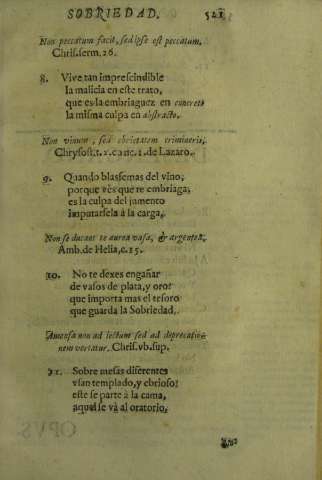 SOBRIEDAD. 521
Non peccatum facit, sed ipse est peccatum.
Chris. serm. 26.
8. Vive tan imprescindible
la malicia en este trato,
que es la embriaguez en concreto
la misma culpa en abstracto.
Non vinum, sed ebrietatem crimineris.
Chrysost. t. 2. conc. 1. de Lazaro.
9. Quando blasfemas del vino,
porque vès que te embriaga,
es la culpa del jumento
imputarsela à la carga.
Non se ducant te aurea vasa, & argentea.
Amb. de Helia, c. 15.
10. No te dexes engañar
de vasos de plata, y oro:
que importa mas el tesoro
que guarda la Sobriedad.
Amensa non ad lectum sed ad deprecatio-
nem vertatur. Chris. vb. sup.
21. Sobre mesas diferentes
vsan templado, y ebrioso:
este se parte à la cama,
aquel se và al oratorio.